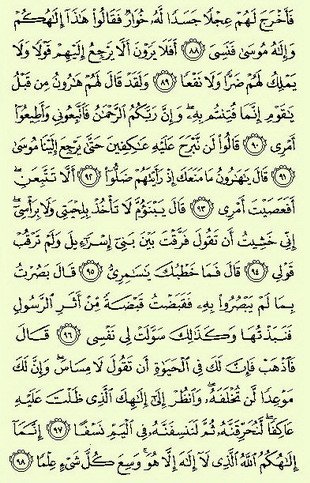 فَأَخْرَجَ لَهُمْ عِجْلًا جَسَدًا لَّهُۥ خُوَارٌ فَقَالُوا۟ هَٰذَآ إِلَٰهُكُمْ
وَإِلَٰهُ مُوسَىٰ فَنَسِىَ ﴿٨٨﴾ أَفَلَا يَرَوْنَ أَلَّا يَرْجِعُ إِلَيْهِمْ قَوْلًا وَلَا
يَمْلِكُ لَهُمْ ضَرًّا وَلَا نَفْعًا ﴿٨٩﴾ وَلَقَدْ قَالَ لَهُمْ هَٰرُونُ مِن قَبْلُ
يَٰقَوْمِ إِنَّمَا فُتِنتُم بِهِۦ ۖ وَإِنَّ رَبَّكُمُ ٱلرَّحْمَٰنُ فَٱتَّبِعُونِى وَأَطِيعُوٓا۟
أَمْرِى ﴿٩٠﴾ قَالُوا۟ لَن نَّبْرَحَ عَلَيْهِ عَٰكِفِينَ حَتَّىٰ يَرْجِعَ إِلَيْنَا مُوسَىٰ
﴿٩١﴾ قَالَ يَٰهَٰرُونُ مَا مَنَعَكَ إِذْ رَأَيْتَهُمْ ضَلُّوٓا۟ ﴿٩٢﴾ أَلَّا تَتَّبِعَنِ ۖ
أَفَعَصَيْتَ أَمْرِى ﴿٩٣﴾ قَالَ يَبْنَؤُمَّ لَا تَأْخُذْ بِلِحْيَتِى وَلَا بِرَأْسِىٓ ۖ
إِنِّى خَشِيتُ أَن تَقُولَ فَرَّقْتَ بَيْنَ بَنِىٓ إِسْرَٰٓءِيلَ وَلَمْ تَرْقُبْ
قَوْلِى ﴿٩٤﴾ قَالَ فَمَا خَطْبُكَ يَٰسَٰمِرِىُّ ﴿٩٥﴾ قَالَ بَصُرْتُ
بِمَا لَمْ يَبْصُرُوا۟ بِهِۦ فَقَبَضْتُ قَبْضَةً مِّنْ أَثَرِ ٱلرَّسُولِ
فَنَبَذْتُهَا وَكَذَٰلِكَ سَوَّلَتْ لِى نَفْسِى ﴿٩٦﴾ قَالَ
فَٱذْهَبْ فَإِنَّ لَكَ فِى ٱلْحَيَوٰةِ أَن تَقُولَ لَا مِسَاسَ ۖ وَإِنَّ لَكَ
مَوْعِدًا لَّن تُخْلَفَهُۥ ۖ وَٱنظُرْ إِلَىٰٓ إِلَٰهِكَ ٱلَّذِى ظَلْتَ عَلَيْهِ
عَاكِفًا ۖ لَّنُحَرِّقَنَّهُۥ ثُمَّ لَنَنسِفَنَّهُۥ فِى ٱلْيَمِّ نَسْفًا ﴿٩٧﴾ إِنَّمَآ
إِلَٰهُكُمُ ٱللَّهُ ٱلَّذِى لَآ إِلَٰهَ إِلَّا هُوَ ۚ وَسِعَ كُلَّ شَىْءٍ عِلْمًا ﴿٩٨﴾